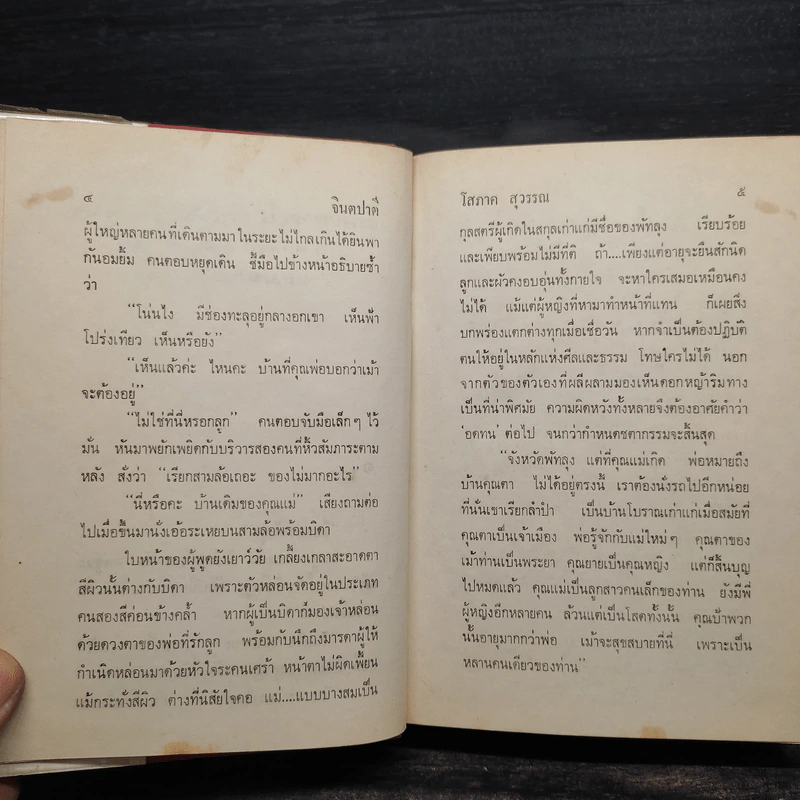 ๔
จินตปาตี
ผู้ใหญ่หลายคนที่เดินตามมาในระยะไม่ไกลเกินได้ยินพา
กันอมยิ้ม คนตอบหยุดเดิน ชี้มือไปข้างหน้าอธิบายซ้ำ
ว่า
“โน่นไง มีช่องทะลุอยู่กลางอกเขา เห็นฟ้า
โปร่งเทียว เห็นหรือยัง”
“เห็นแล้วค่ะ ไหนคะ บ้านที่คุณพ่อบอกว่าเม้า
จะต้องอยู่”
“ไม่ใช่ที่นี่หรอกลูก” คนตอบจับมือเล็กๆ ไว้
มั่น หันมาพยักเพยิดกับบริวารสองคนที่หิ้วสัมภาระตาม
หลัง สั่งว่า “เรียกสามล้อเถอะ ของไม่มากอะไร”
“นี่หรือคะ บ้านเดิมของคุณแม่” เสียงถามต่อ
ไปเมื่อขึ้นมานั่งเอ้อระเหยบนสามล้อพร้อมบิดา
ใบหน้าของผู้พูดยังเยาว์วัย เกลี้ยงเกลาสะอาดตา
สีผิวนั้นต่างกับบิดา เพราะตัวหล่อนจัดอยู่ในประเภท
คนสองสีค่อนข้างคล้ำ หากผู้เป็นบิดาก็มองเจ้าหล่อน
ด้วยดวงตาของพ่อที่รักลูก พร้อมกับนึกถึงมารดาผู้ให้
กำเนิดหล่อนมาด้วยหัวใจระคนเศร้า หน้าตาไม่ผิดเพี้ยน
แม้กระทั่งสีผิว ต่างที่นิสัยใจคอ แม่....แบบบางสมเป็น
โสภาค สุวรรณ
๕
กุลสตรีผู้เกิดในสกุลเก่าแก่มีชื่อของพัทลุง เรียบร้อย
และเพียบพร้อมไม่มีที่ติ ถ้า....เพียงแต่อายุจะยืนสักนิด
ลูกและผัวคงอบอุ่นทั้งกายใจ จะหาใครเสมอเหมือนคง
ไม่ได้ แม้แต่ผู้หญิงที่หามาทำหน้าที่แทน ก็เผยสิ่ง
บกพร่องแตกต่างทุกเมื่อเชื่อวัน หากจำเป็นต้องปฏิบัติ
ตนให้อยู่ในหลักแห่งศีลและธรรม โทษใครไม่ได้ นอก
จากตัวของตัวเองที่ผลีผลามมองเห็นดอกหญ้าริมทาง
เป็นที่น่าพิศมัย ความผิดหวังทั้งหลายจึงต้องอาศัยคำว่า
‘อดทน’ ต่อไป จนกว่ากำหนดชตากรรมจะสิ้นสุด
“จังหวัดพัทลุง แต่ที่คุณแม่เกิด พ่อหมายถึง
บ้านคุณตา ไม่ได้อยู่ตรงนี้ เราต้องนั่งรถไปอีกหน่อย
ที่นั่นเขาเรียกลำปำ เป็นบ้านโบราณเก่าแก่เมื่อสมัยที่
คุณตาเป็นเจ้าเมือง พ่อรู้จักกับแม่ใหม่ๆ คุณตาของ
เม้าท่านเป็นพระยา คุณยายเป็นคุณหญิง แต่ก็สิ้นบุญ
ไปหมดแล้ว คุณแม่เป็นลูกสาวคนเล็กของท่าน ยังมีพี่
ผู้หญิงอีกหลายคน ล้วนแต่เป็นโสดทั้งนั้น คุณป้าพวก
นั้นอายุมากกว่าพ่อ เม้าจะสุขสบายที่นี่ เพราะเป็น
หลานคนเดียวของท่าน”